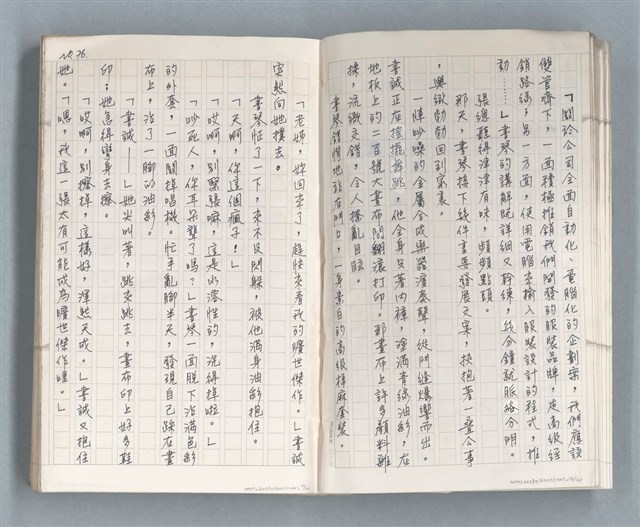 「關於公司全面自動化、電腦化的企劃案，我們應該
雙管齊下，一面積極推銷我們開發的服裝品牌，走高級經
銷路線；另一方面，使用電腦來輸入服裝設計的程式，推
動……」書琴的講解既詳細又幹練，幾分鐘就脈絡分明。
張總聽得津津有味，頻頻點頭。
那天，書琴接下幾件重要發展文案，挾抱著一疊公事
，興緻勃勃回到家裏。
一陣吵嚷的金屬合成樂器演奏聲，從門縫爆響而出。
書誠正在搖擺舞跳，他全身只著內褲，塗滿青綠油彩，在
地板上的二百號大畫布間翻滾打印。那畫布上許多顏料雜
揉，流織交錯，令人撩亂目眩。
書琴錯愕地站在門上，一身素白的高級棉麻套裝。
No. 76.
「老師，妳回來了，趕快來看我的曠世傑作。」書誠
突然向她撲去。
書琴怔了一下，來不及閃躲，被他滿身油彩抱住。
「天啊，你這個瘋子！」
「哎啊，別緊張嘛，這是水溶性的，洗得掉啦。」
「吵死人，你耳朵聾了嗎？」書琴一面脫下沾滿色彩
的外套，一面關掉唱機。忙手亂腳半天，發現自己踩在畫
布上，沾了一腳的油彩。
「書誠——」她尖叫著，跳來跳去，畫布印上好多鞋
印；她急得彎身去擦。
「哎啊，別擦掉，這樣好，渾然天成。」書誠又抱住
她。「嗯，我這一張太有可能成為曠世傑作哩。」